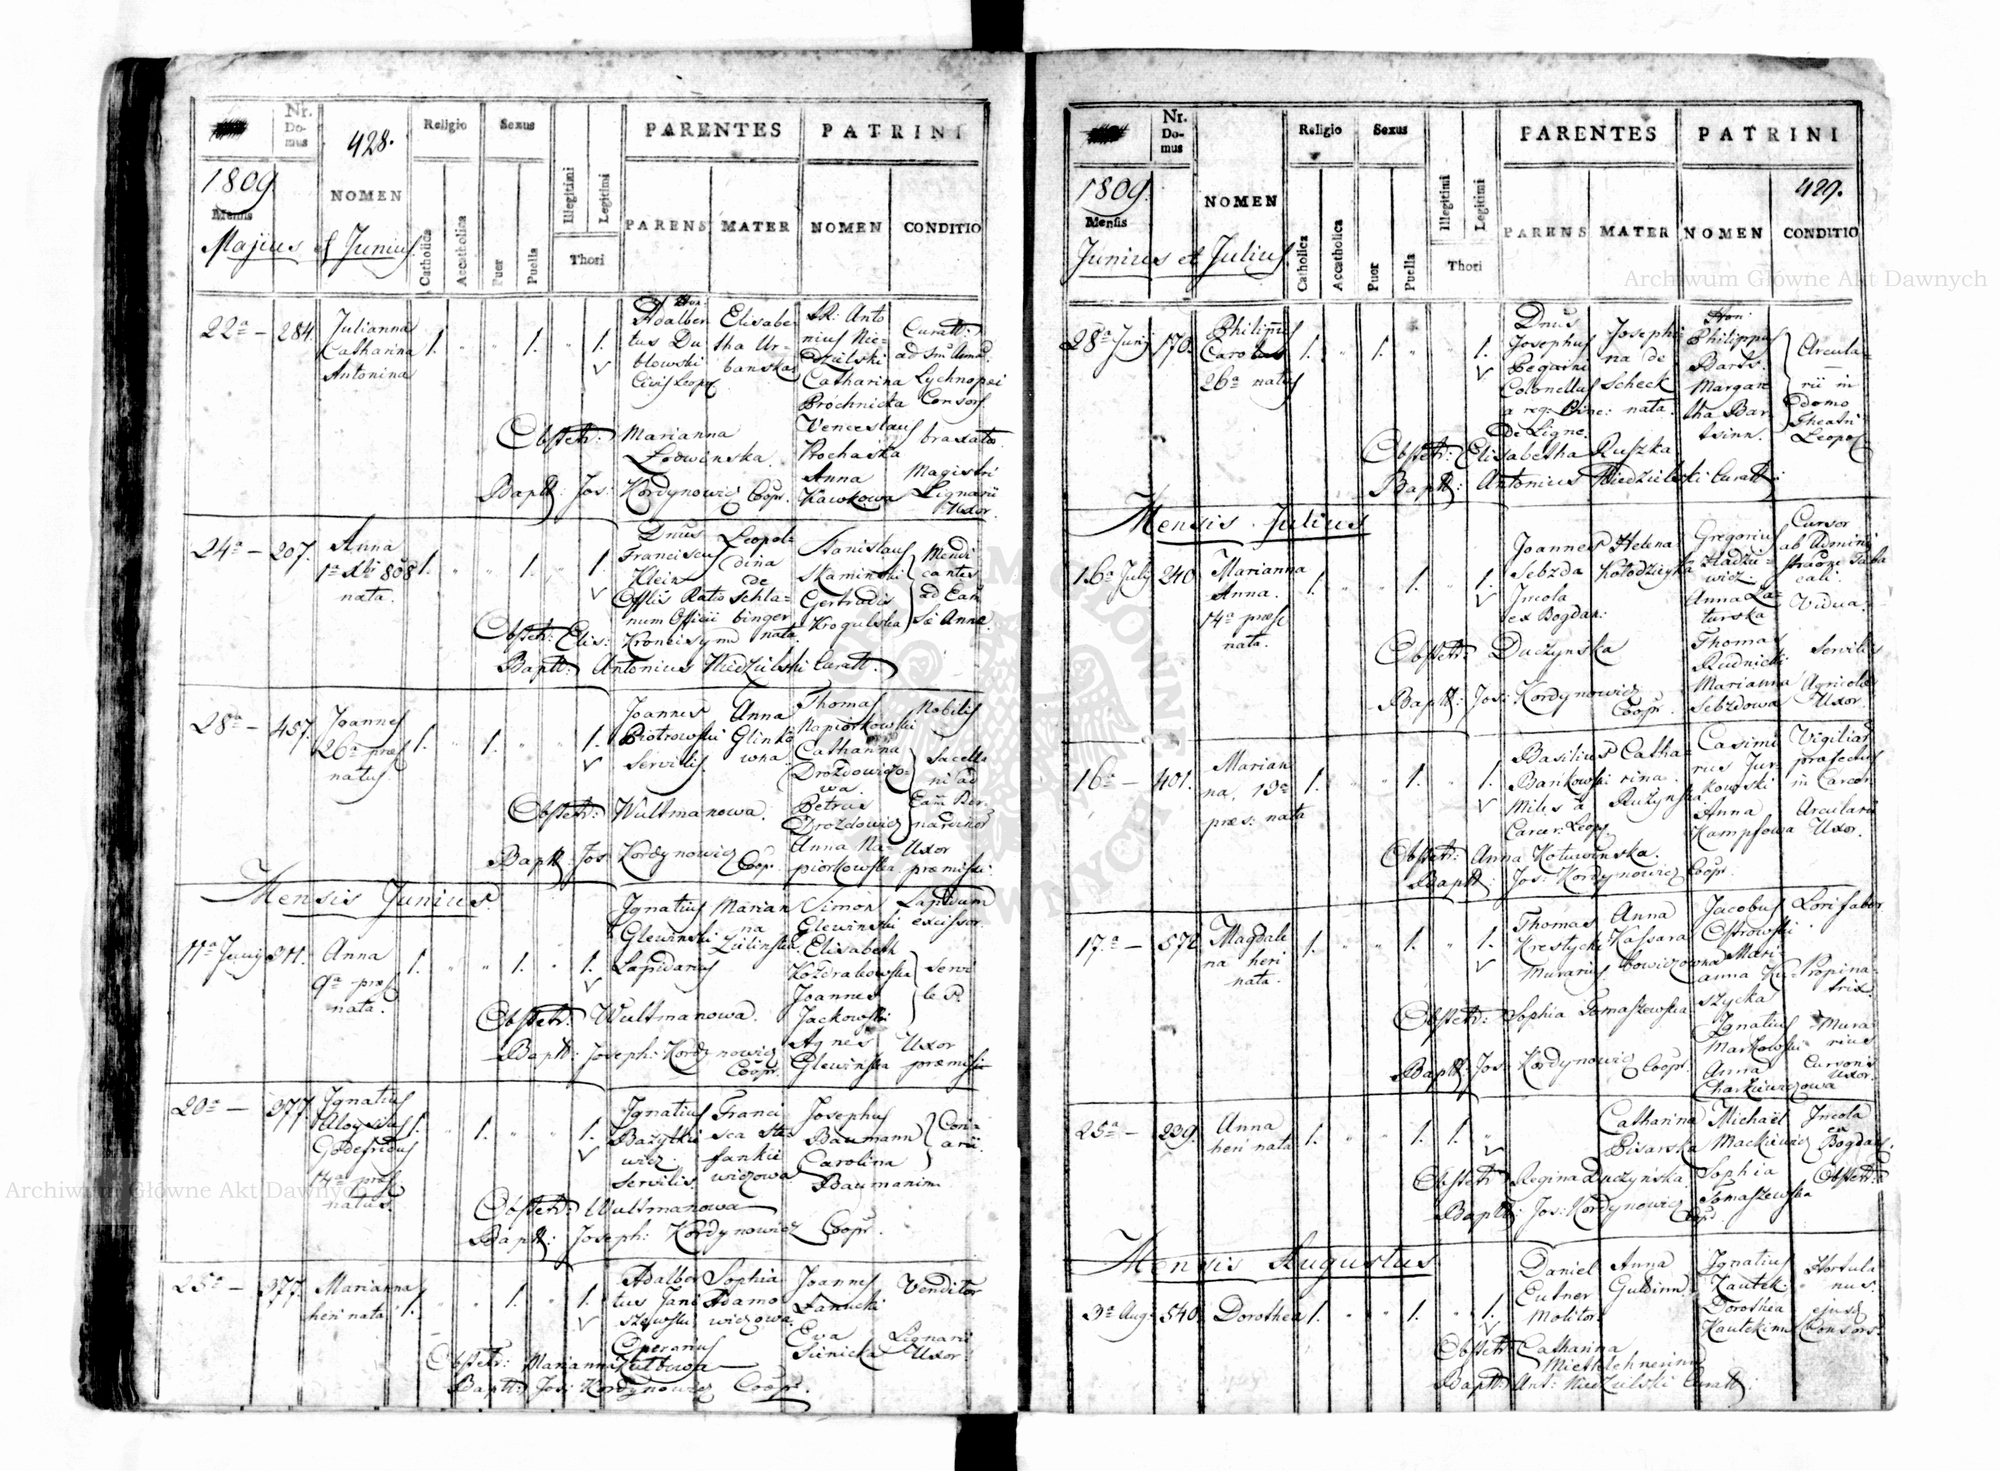 428.
Nr. Domus
NOMEN
Religio
Catholica
Accatholica
Sexus
Puer
Puella
Illegitimi
Legitimi
Thori
PARENTES
PARENS
MATER
PATRINI
NOMEN
CONDITIO
1809.
Mensis
Majius et Junius.
22a — 284.
Julianna
Catharina
Antonina
1. 1. 1.
Hon.
Adalber
tus Du
blowski
Civis Leop.
Elisabe
tha Ur-
banska
Anto
nius Nie-
dzielski
Catharina
Próchnicka
Venceslaus
Prochaska
Anna
Kawkowa
Curatt:
Lychnopœi
Consors
braxator
Magistri
Lignarii
Uxor.
Obstetr: Marianna
Lodwinska.
Baptt: Jos: Kordynowicz Coop.
24a — 207.
Anna
1a Xbr 808
nata.
1. 1. 1.
Dnus
Franciscus
Klein
Offlis Ratio
num Officii
Leopol-
dina
de
Schla-
binger
nata
Stanislaus
Skaminski
Gertrudis
Krogulska
Mendi
cantes
ad Eam
S. Annæ.
Obstetr: Elis:
Baptt: Antonius Niedzielski Curatt.
28a — 457.
Joannes
26a præs
natus
1. 1. 1.
Joannes
Piotrowski
Servilis.
Anna
Glinko
wna.
Thomas
Napiorkowski
Catharina
Drozdowiczo-
wa
Petrus
Drozdowicz
Anna Na-
piorkowska
Nobilis
Sacelli
ni ad
Eam Ber
nardinor
Uxor
præmissi.
Obstetr: Wultmanowa.
Baptt: Jos Kordynowicz Coop.
Mensis Junius.
11a Junij 311.
Anna
9a præs
nata.
1. 1. 1.
Ignatius
Glewinski
Lapidarius
Marian
na
Zielinska
Simon
Glewinski
Elisabeth
Kozdrakowska
Joannes
Jackowski
Agnes
Glewińska
Lapidum
excissor.
Servi
les.
Uxor
præmissi
Obstetr: Wultmanowa.
Baptt: Joseph: Kordynowicz
Coopr.
20a — 377.
Ignatius
Aloysius
Godefridus
14a præs
natus.
1. 1. 1.
Ignatius
Bazylkie
wicz.
Servilis
Franci
sca Ste
fankie
wiczowa
Josephus
Baumann
Carolina
Baumanin
Coriarii.
Obstetr: Wultmanowa
Baptt: Joseph: Kordynowicz Coopr.
25a — 377.
Marianna
heri nata
1. 1. 1.
Adalber
tus Jani
szewski
Operarius
Sophia
Adamo
wiczowa
Joannes
Lanucki
Eva
Sienicka
Venditor
Lignarii
Uxor.
Obstetr: Marianna
Baptt: Jos: Kordynowicz Coopr.
Nr. Domus
NOMEN
Religio
Catholica
Accatholica
Sexus
Puer
Puella
Illegitimi
Legitimi
Thori
PARENTES
PARENS
MATER
PATRINI
NOMEN
CONDITIO
429.
1809.
Mensis
Junius et Julius.
28a Junij 170.
Philippus
Carolus
26a natus
1. 1. 1.
Dnus
Josephus
Begarni
Colonellus
a reg:
De Ligne.
Josephi
na de
Scheck
nata.
Hon:
Philippus
Barts.
Margare
tha Bar
tsinn.
Arcula-
rii in
domo
Theatri
Leopol.
Obstetr: Elisabetha Ruszka
Baptt: Antonius Niedzielski Curatt:
Mensis Julius
16a July 240.
Marianna
Anna.
14a præs
nata.
1. 1. 1.
Joannes
Sebzda
Incola
ex Bogdan:
Helena
Kołodzieyka
Gregorius
Hadzie
wicz.
Anna La-
turska
Thomas
Rudnicki
Marianna
Sebzdowa
Cursor
ab Admini
Vidua.
Servilis
Agricolæ
Uxor.
Obstetr: Duczynska
Baptt: Jos: Kordynowicz
Coopr.
16a — 401.
Marian
na, 13a
præs: nata
1. 1. 1.
Basilius
Bankowski
Miles a
Carcer: Leop.
Catha-
rina
Ružynska
Casimi
rus Jur-
kowski
Anna
Kampfowa
Vigiliar
præfectus
in Carcer.
Arcularii
Uxor.
Obstetr: Anna Kotuwinska.
Baptt: Jos: Kordynowicz Coopr.
17a — 572
Magdale
na heri
nata.
1. 1. 1.
Thomas
Krestycki
Murarius
Anna
Kassara
bowiczowna
Jacobus
Ostrowski.
Mari-
anna Ku-
szycka
Ignatius
Markowski
Anna
Charkiewiczowa
Lorifaber
Propina-
trix.
Mura
rius
Cursoris
Uxor.
Obstetr: Sophia Tomaszewska
Baptt: Jos Kordynowicz Coopr.
25a — 239.
Anna
heri nata
1. 1. 1.
Catharina
Pisarska
Michael
Mackiewicz
Sophia
Tomaszewska
Incola
ex
Bogdan.
Obstetr:
Obstetr: Regina Duczyńska
Baptt: Jos: Kordynowicz
Coopr
Mensis Augustus
3a Aug: 540.
Dorothea
1. 1. 1.
Daniel
Eutner
Molitor
Anna
Guldinn
Ignatius
Kautek
Dorothea
Kautekinn
Hortula
nus.
ejusd
Consors.
Obstetr: Catharina
Baptt: Ant: Niedzielski Curatt.
Archiwum Główne Akt Dawnych
Archiwum Główne Akt Dawnych